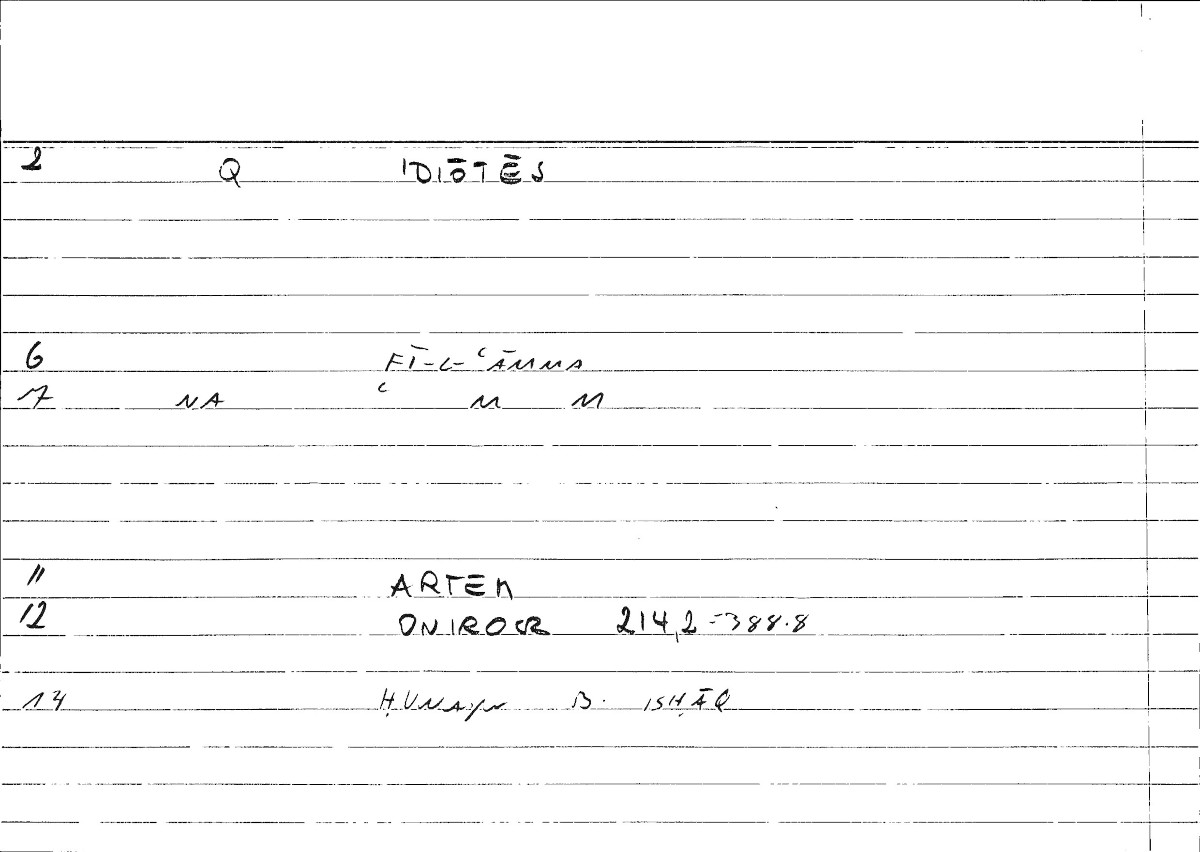 2 Q IDIŌTĒS
6 FĪ-L-ʿĀMMA
7 NA ʿ M M
11 ARTEM
12 ONIROCR 214,2-388.8
14 ḤUNAYN B. ISḤĀQ